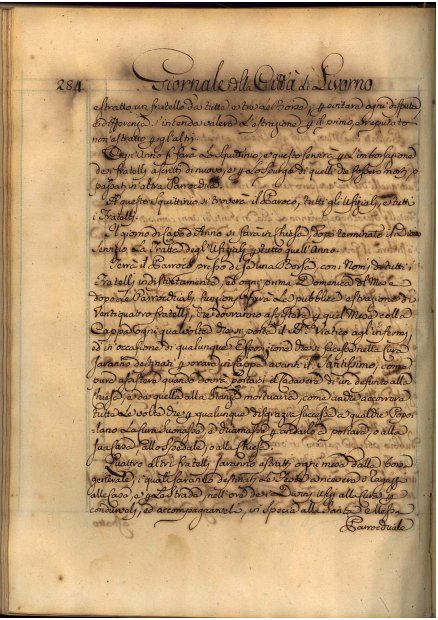 284 Giornale della Città di Livorno
estratto un fratello da tutte e tre le Borse, e per evitare ogni disputa
e differenza s'intenda valere l'estrazione per il primo, e reputato
non estratto per gl'altri.
Ogni Anno si farà lo Squittinio, e questo servirà per l'imborsazione
dei fratelli ascritti di nuovo, e per lo spurgo di quelli che fossero morti, o
passati in altra Parrocchia.
A questo Squittinio si troverà il Paroco, tutti gli Ufiziali, e tutti
i Fratelli.
Il giorno di Capo d'Anno si farà in Chiesa dopo terminato il
Servizio la Tratta degl'Ufiziali per tutto quell'Anno.
Terrà il Paroco presso di se una Borsa con i Nomi di tutti i
Fratelli indistintamente, ed ogni prima Domenica del Mese
dopo le Parrocchiali funzioni farà la pubblica estrazione di
Ventiquattro fratelli, che dovranno assistere per quel Mese colla
Cappa ogni qual volta che si porterà il SS. Viatico agl'infermi,
ed in occasione di qualunque Esposizione che si facesse nella Cura
saranno destinati per orare in Cappa avanti il Santissimo, come
pure assistere quando dovrà portarsi il Cadavere di un defunto alla
Chiesa, e da quella alla Stanza mortuaria, come anche accorrere
tutte le volte che per qualunque disgrazia successa a qualche Popo-
lano la Cura suonasse a chiamata per andarlo a portare, o alla
sua Casa, allo Spedale, o alla Chiesa.
Quattro altri fratelli saranno estratti ogni mese dalla borsa
generale, i quali saranno destinati le Feste a ricevere i Ragazzi
alle Case, e per le Strade nell'ore dei Divini Ufizi alla Cura per
condurveli, ed accompagnarveli, in specie alla Santa Messa
Parrocchiale